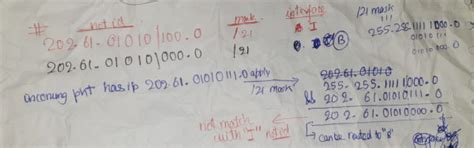 # net id mask interface
202.61.01010|100.0 /21 I
202.61.01010|000.0 /21 B
/21 mask
255.255.11111000.0
01010111
oncoming pkt has ip 202.61.01010111.0 apply /21 mask
202.61.01010
255.255.11111000.0
&& 202.61.01010111.0
202.61.01010000.0
not match with "I" netid
can be routed to "B"